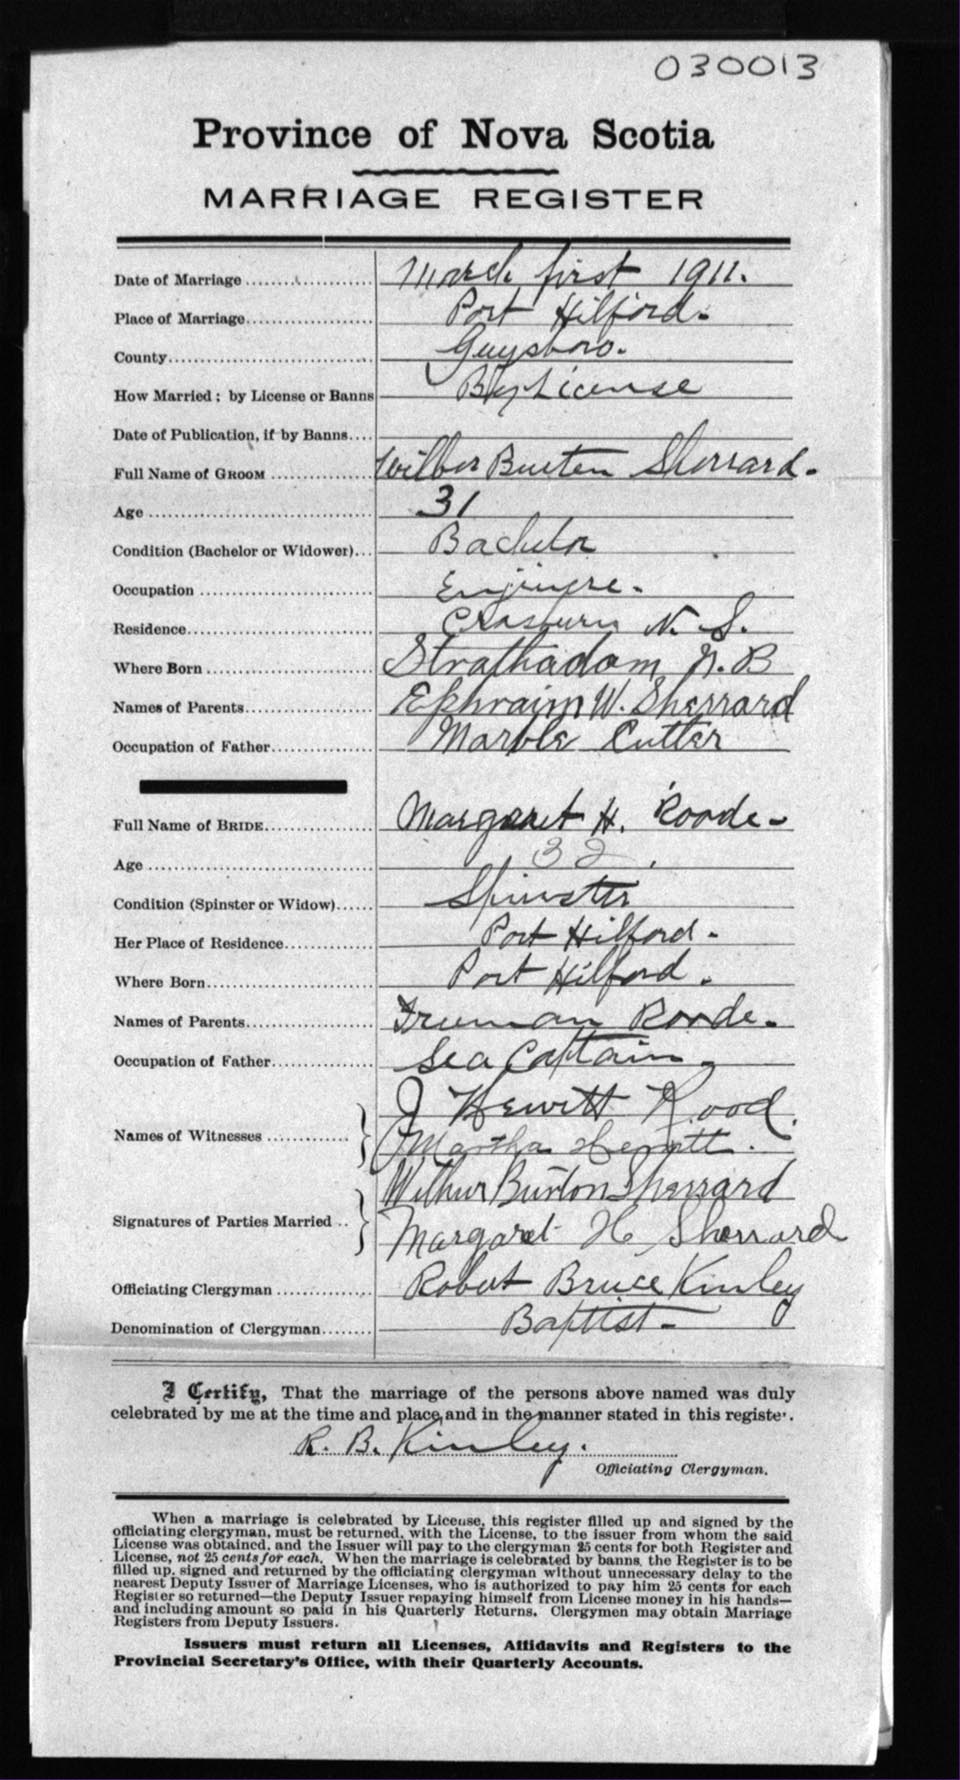 030013
Province of Nova Scotia
MARRIAGE REGISTER
Date of Marriage March first 1911.
Place of Marriage Port Hilford.
County Guysboro.
How Married; by License or Banns By License
Date of Publication, if by Banns
Full Name of GROOM Wilber Burten Sherrard.
Age 31
Condition (Bachelor or Widower) Bachelor
Occupation
Residence N. S.
Where Born Strathadam N. B
Names of Parents Ephraim W. Sherrard
Occupation of Father Marble Cutter
Full Name of BRIDE Margaret H. Roode
Age 32.
Condition (Spinster or Widow) Spinster
Her Place of Residence Port Hilford.
Where Born Port Hilford.
Names of Parents Truman Roode.
Occupation of Father Sea Captain
Names of Witnesses J Hewitt Rood.
Martha Hewitt.
Signatures of Parties Married Wilbur Burton Sherrard
Margaret H Sherrard
Officiating Clergyman Robert Bruce Kinley
Denomination of Clergyman Baptist
I Certify, That the marriage of the persons above named was duly
celebrated by me at the time and place, and in the manner stated in this register.
R. B. Kinley.
Officiating Clergyman.
When a marriage is celebrated by License, this register filled up and signed by the
officiating clergyman, must be returned, with the License, to the issuer from whom the said
License was obtained, and the Issuer will pay to the clergyman 25 cents for both Register and
License, not 25 cents for each. When the marriage is celebrated by banns, the Register is to be
filled up, signed and returned by the officiating clergyman without unnecessary delay to the
nearest Deputy Issuer of Marriage Licenses, who is authorized to pay him 25 cents for each
Register so returned—the Deputy Issuer repaying himself from License money in his hands—
and including amount so paid in his Quarterly Returns. Clergymen may obtain Marriage
Registers from Deputy Issuers.
Issuers must return all Licenses, Affidavits and Registers to the
Provincial Secretary's Office, with their Quarterly Accounts.